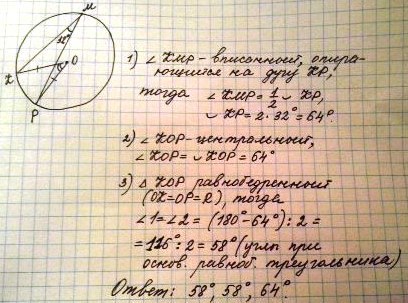 M
32°
O
K
P
1) ∠ KMP - вписанный, опира-
ющийся на дугу KP,
тогда ∠ KMP = 1/2 ◡ KP,
◡ KP = 2 · 32° = 64°.
2) ∠ KOP - центральный,
∠ KOP = ◡ KOP = 64°
3) △ KOP равнобедренный
(OK = OP = R), тогда
∠1 = ∠2 = (180° - 64°) : 2 =
= 116° : 2 = 58° (углы при
основ. равноб. треугольника)
Ответ: 58°, 58°, 64°.